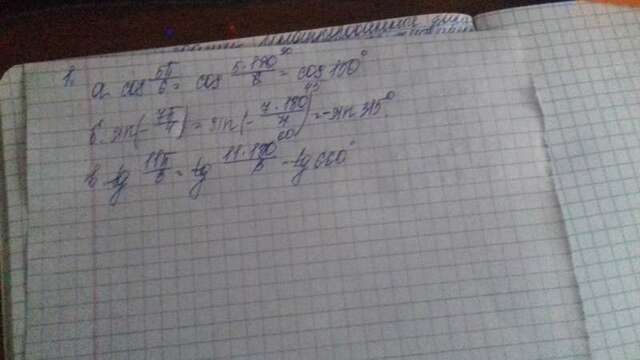 1. а. cos 5π/6 = cos 5·180/6 30 = cos 150°
б. sin(-7π/4) = sin(-7·180/4) 45 = -sin 315°
в. tg 11π/3 = tg 11·180/3 60 = tg 660°